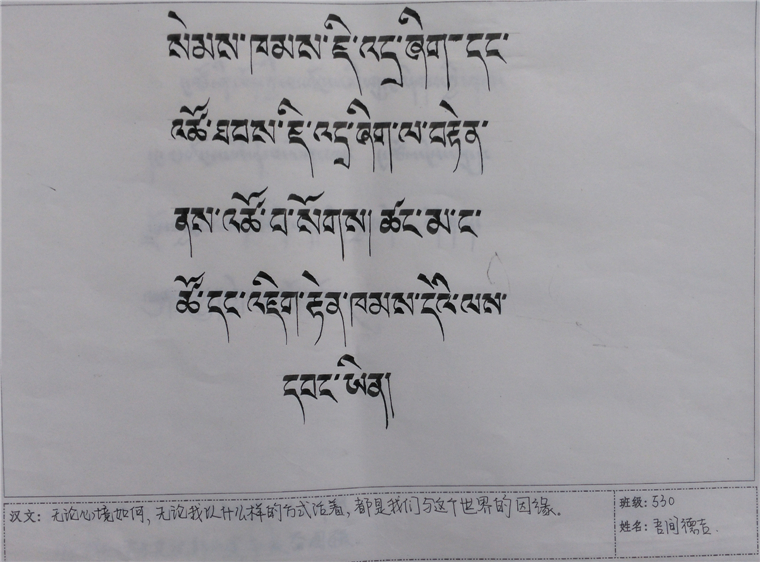 སེམས་ཁམས་ཇི་འདྲ་ཞིག་དང་
འཚོ་ཐབས་ཇི་འདྲ་ཞིག་ལ་བརྟེན་
ནས་འཚོ་བ་སོགས། ཚང་མ་ང་
ཚོ་དང་འཇིག་རྟེན་ཁམས་དེའི་ལས་
དབང་ཡིན།
汉文: 无论心境如何, 无论我以什么样的方式活着, 都是我们与这个世界的因缘。
班级: 530
姓名: 吾间德吉